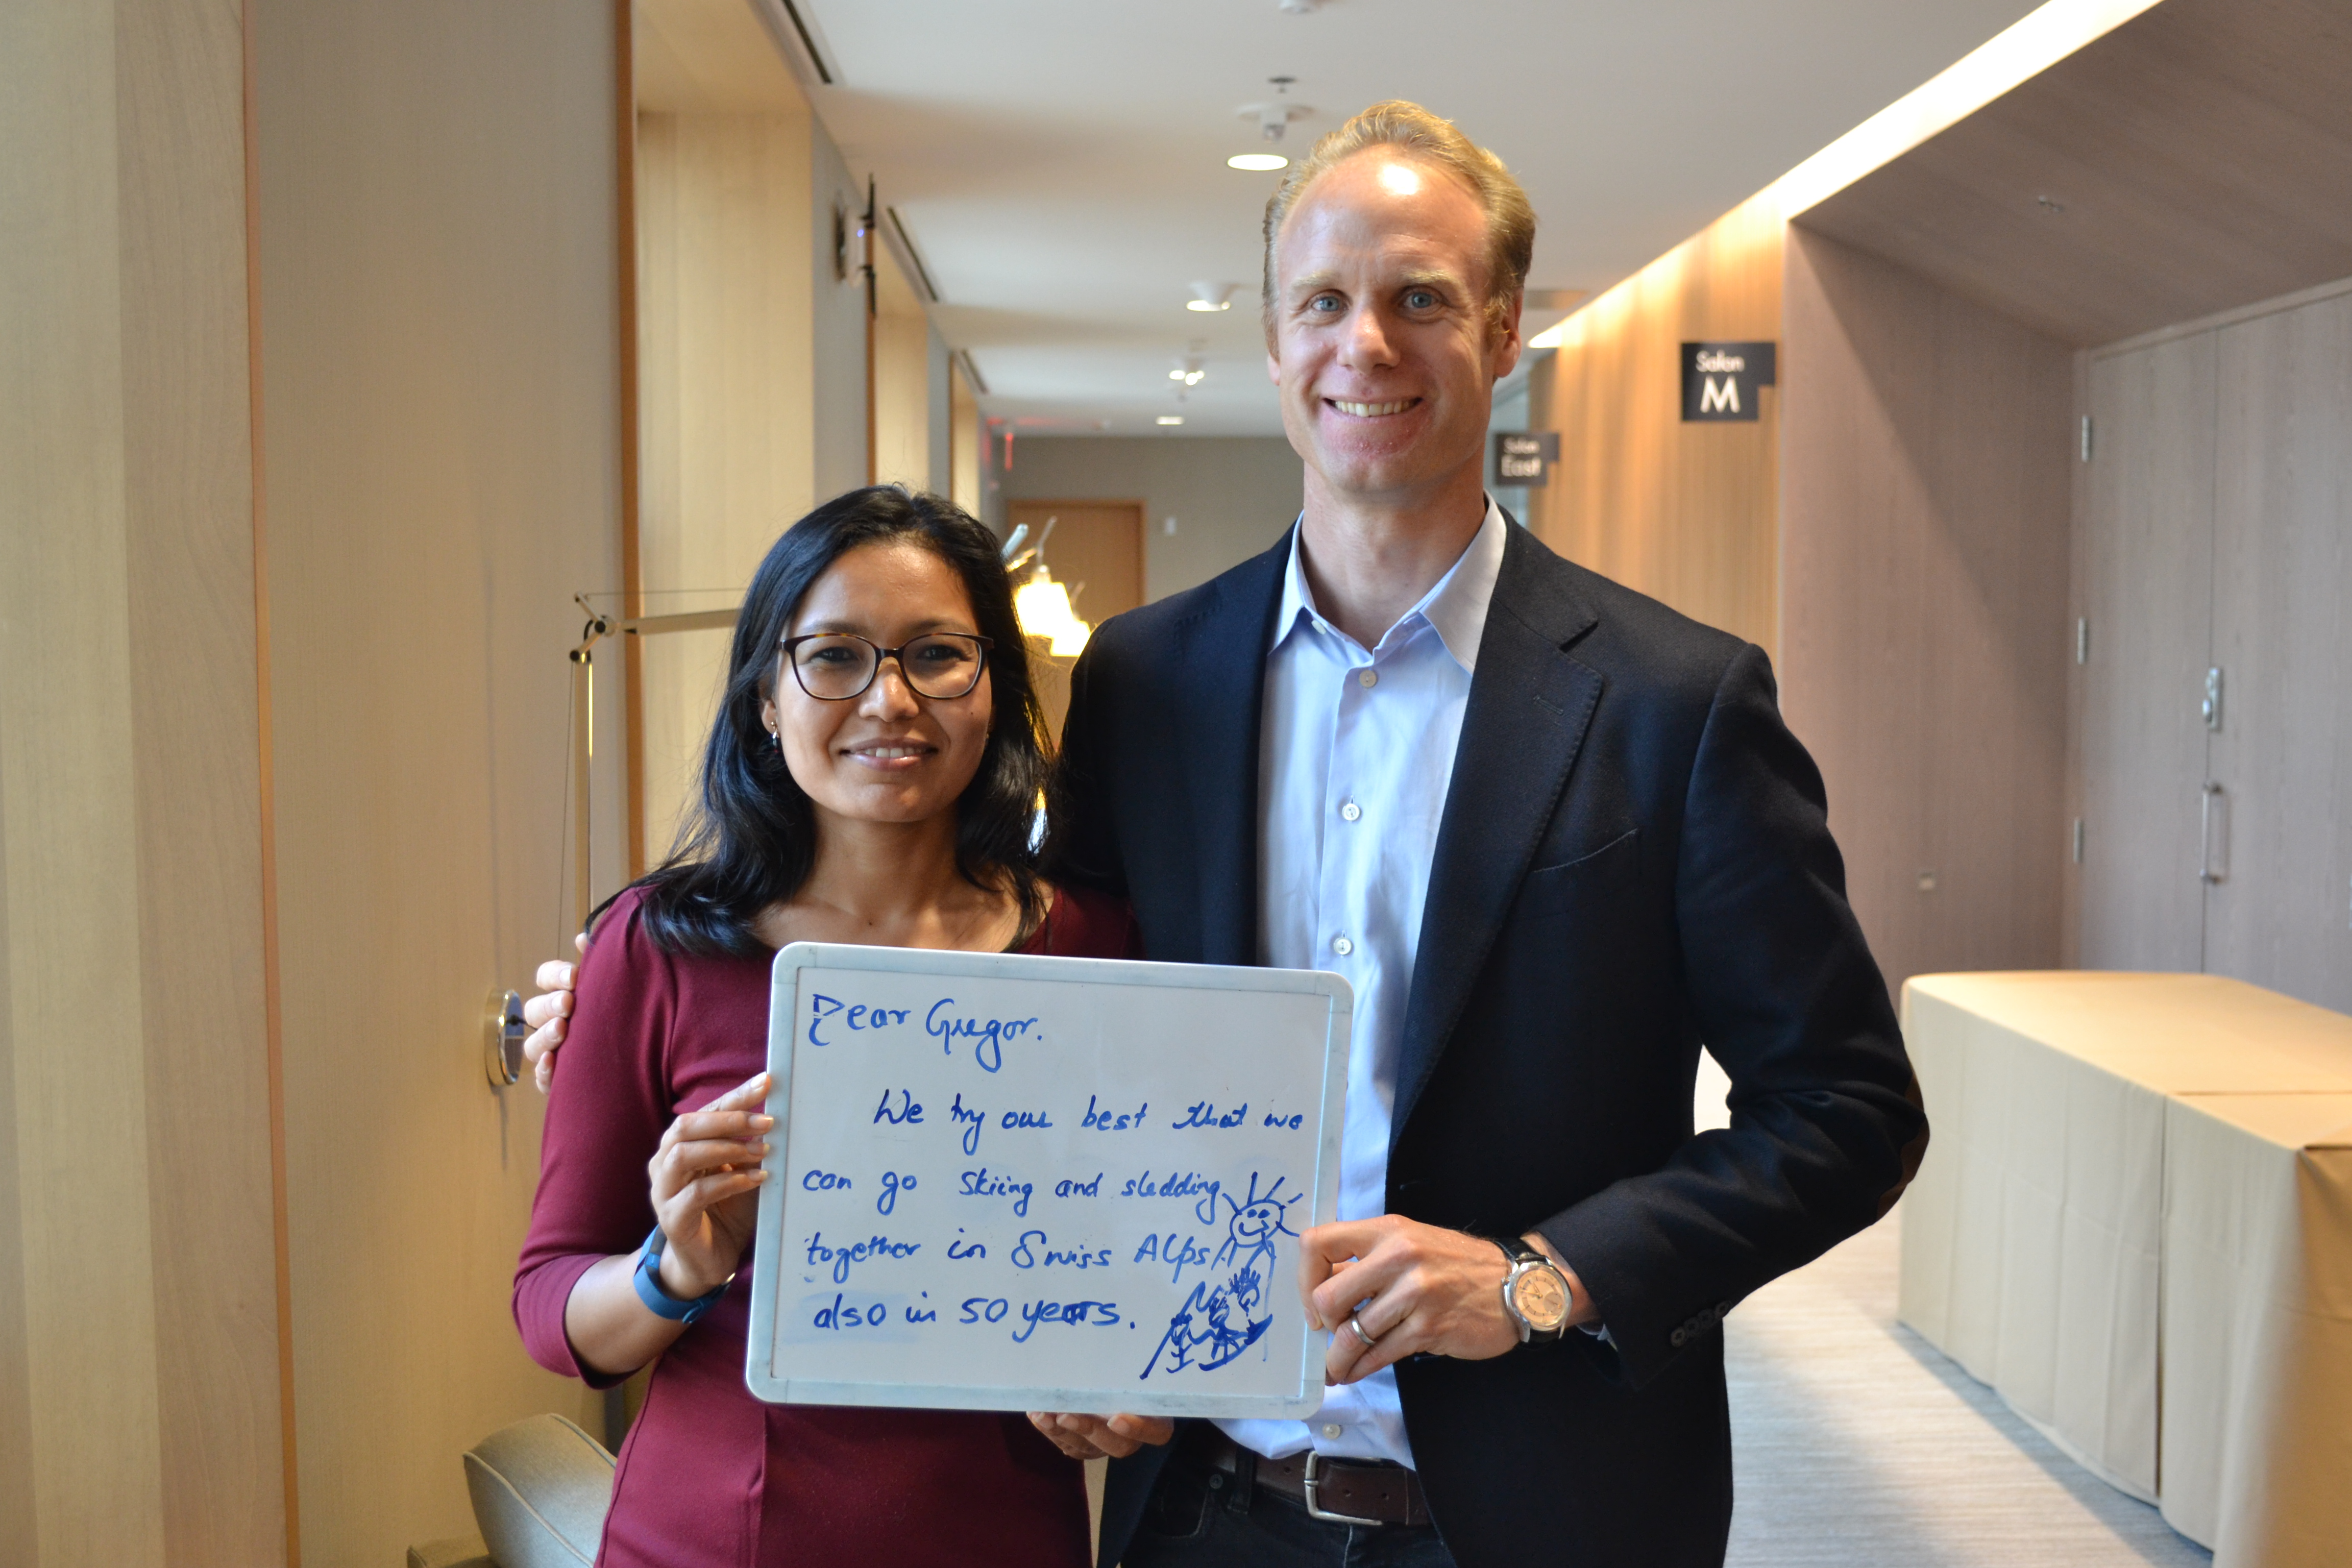 Salon
M
Salon
East
Dear Gregor.
We try our best that we
can go skiing and sledding
together in Swiss Alps
also in 50 years.